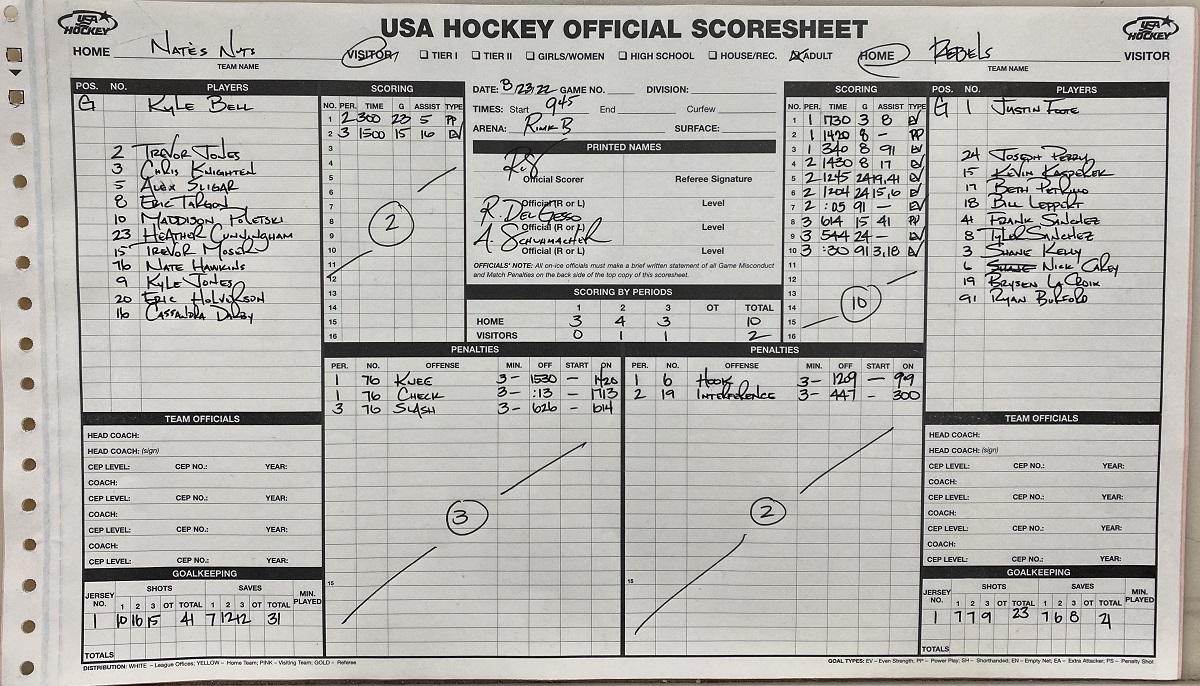 USA HOCKEY OFFICIAL SCORESHEET
USA HOCKEY
USA HOCKEY
HOME Nate's Nuts VISITOR □ TIER I □ TIER II □ GIRLS/WOMEN □ HIGH SCHOOL □ HOUSE/REC. ☒ ADULT HOME Rebels VISITOR
TEAM NAME
TEAM NAME
POS. NO. PLAYERS
G Kyle Bell
2 Trevor Jones
3 Chris Knighten
5 Alex Sligar
7 Eric Targon
10 Maddison Poletski
23 Heather Cunningham
15 Trevor Moser
76 Nate Hawkins
9 Kyle Jones
20 Eric Holverson
16 Cassandra Darby
SCORING
NO. PER. TIME G ASSIST TYPE
1 2 300 23 5 PP
2 3 1500 15 16 EV
3
4
5
6
7
8
9
10
11
12
13
14
15
16
2
DATE: 8/23/22 GAME NO. DIVISION:
TIMES: Start 945 End Curfew
ARENA: Rink B SURFACE:
PRINTED NAMES
Official Scorer Referee Signature
R. DelGesso
Official (R or L) Level
A. Schumacher
Official (R or L) Level
Official (R or L) Level
OFFICIALS' NOTE: All on-ice officials must make a brief written statement of all Game Misconduct
and Match Penalties on the back side of the top copy of this scoresheet.
SCORING BY PERIODS
1 2 3 OT TOTAL
HOME 3 4 3 10
VISITORS 0 1 1 2
SCORING
NO. PER. TIME G ASSIST TYPE
1 1 1730 3 8 EV
2 1 1420 8 – PP
3 1 340 8 91 EV
4 2 1430 8 17 EV
5 2 1245 24 19,41 EV
6 2 1204 24 15,6 EV
7 2 :05 91 – EV
8 3 614 15 41 PP
9 3 544 24 – EV
10 3 :30 91 3,18 EV
11
12
13
14
15
16
10
POS. NO. PLAYERS
G 1 Justin Foote
24 Joseph Perry
15 Kevin Kasperek
17 Beth Petrino
18 Bill Leppert
41 Frank Sanchez
8 Tyler Sanchez
3 Shane Kelly
6 Nick Carey
19 Brysen LaCroix
91 Ryan Burford
PENALTIES
PER. NO. OFFENSE MIN. OFF START ON
1 76 Knee 3 – 1530 – 1420
1 76 Check 3 – :13 – 1713
3 76 Slash 3 – 626 – 614
15
3
PENALTIES
PER. NO. OFFENSE MIN. OFF START ON
1 6 Hook 3 – 1209 – 909
2 19 Interference 3 – 447 – 300
15
2
TEAM OFFICIALS
HEAD COACH:
HEAD COACH: (sign)
CEP LEVEL: CEP NO.: YEAR:
COACH:
CEP LEVEL: CEP NO.: YEAR:
COACH:
CEP LEVEL: CEP NO.: YEAR:
COACH:
CEP LEVEL: CEP NO.: YEAR:
GOALKEEPING
JERSEY NO. SHOTS SAVES MIN. PLAYED
1 2 3 OT TOTAL 1 2 3 OT TOTAL
1 10 16 15 41 7 12 12 31
TOTALS
TEAM OFFICIALS
HEAD COACH:
HEAD COACH: (sign)
CEP LEVEL: CEP NO.: YEAR:
COACH:
CEP LEVEL: CEP NO.: YEAR:
COACH:
CEP LEVEL: CEP NO.: YEAR:
COACH:
CEP LEVEL: CEP NO.: YEAR:
GOALKEEPING
JERSEY NO. SHOTS SAVES MIN. PLAYED
1 2 3 OT TOTAL 1 2 3 OT TOTAL
1 7 7 9 23 7 6 8 21
TOTALS
DISTRIBUTION: WHITE – League Offices; YELLOW – Home Team; PINK – Visiting Team; GOLD – Referee
GOAL TYPES: EV – Even Strength; PP – Power Play; SH – Shorthanded; EN – Empty Net; EA – Extra Attacker; PS – Penalty Shot